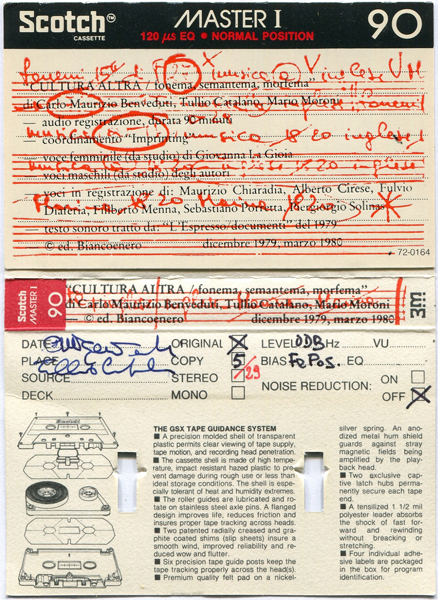 Scotch™ MASTER I 90
CASSETTE
120 µs EQ • NORMAL POSITION
"CULTURA ALTRA / fonema, semantema, morfema"
di Carlo Maurizio Benveduti, Tullio Catalano, Mario Moroni
— audio registrazione, durata 90 minuti
coordinamento "Imprinting"
musica 18 20 inglese
voci femminile (da studio) di Giovanna La Gioia
voci maschili (da studio) degli autori
voci in registrazione di: Maurizio Chiaradia, Alberto Cirese, Fulvio
Diaferia, Filiberto Menna, Sebastiano Porretta, Piergiorgio Solinas
— testo sonoro tratto da: "L'Espresso/documenti" del 1979
— © ed. Biancoenero dicembre 1979, marzo 1980
72-0164
Scotch MASTER I
90
"CULTURA ALTRA / fonema, semantema, morfema"
di Carlo Maurizio Benveduti, Tullio Catalano, Mario Moroni
— © ed. Biancoenero dicembre 1979, marzo 1980
3m
DATE ORIGINAL X LEVEL ODB Hz VU
PLACE COPY 5 BIAS FePos. EQ
SOURCE STEREO /29 NOISE REDUCTION: ON
DECK MONO OFF X
THE GSX TAPE GUIDANCE SYSTEM
■ A precision molded shell of transparent
plastic permits clear viewing of tape supply,
tape motion, and recording head penetration.
■ The cassette shell is made of high temper-
ature, impact resistant hazed plastic to pre-
vent damage during rough use or less than
ideal storage conditions. The shell is espe-
cially tolerant of heat and humidity extremes.
■ The roller guides are lubricated and ro-
tate on stainless steel axle pins. A flanged
design improves life, reduces friction and
insures proper tape tracking across heads.
■ Two patented radially creased and gra-
phite coated shims (slip sheets) insure a
smooth wind, improved reliability and re-
duced wow and flutter.
■ Six precision tape guide posts keep the
tape tracking properly across the head(s).
■ Premium quality felt pad on a nickel-
silver spring. An ano-
dized metal hum shield
guards against stray
magnetic fields being
amplified by the play-
back head.
■ Two exclusive cap-
tive latch hubs perma-
nently secure each tape
end.
■ A tensilized 1 1/2 mil
polyester leader absorbs
the shock of fast for-
ward and rewinding
without breaking or
stretching.
■ Four individual adhe-
sive labels are packaged
in the box for program
identification.